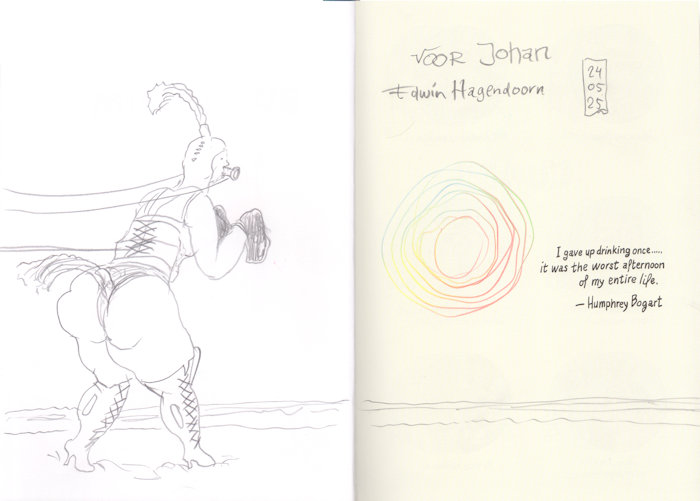 VOOR Johan
Edwin Hagendoorn
24
05
25
I gave up drinking once.....
it was the worst afternoon
of my entire life.
— Humphrey Bogart